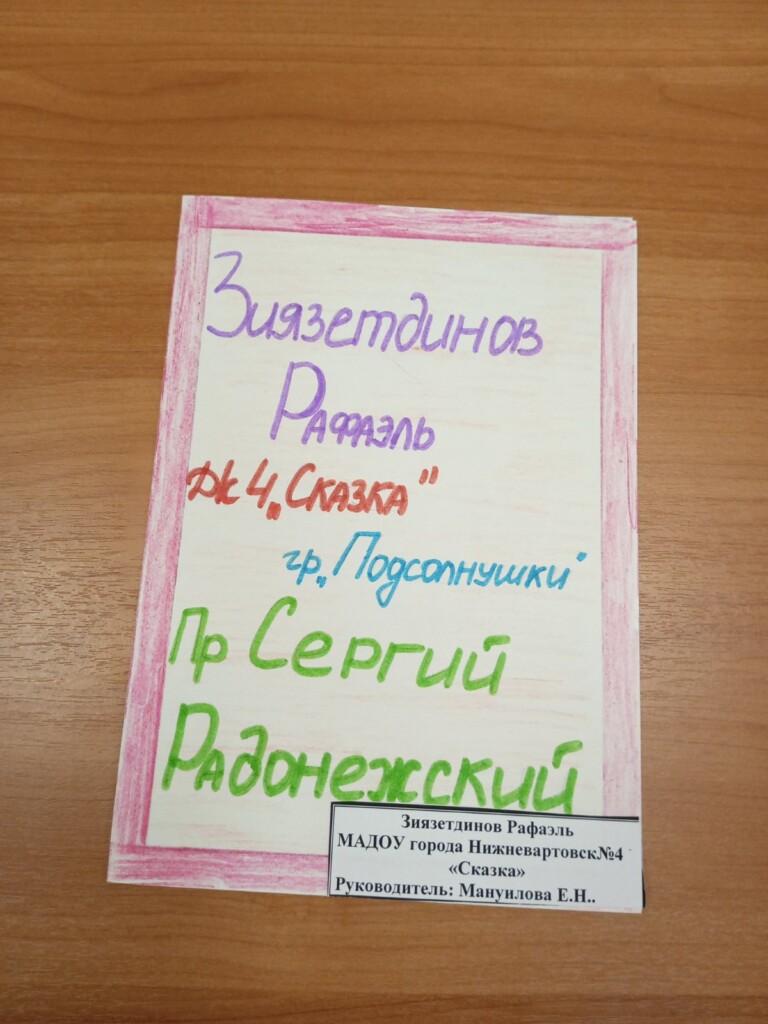 Зиязетдинов
Рафаэль
Д/с 4 „Сказка"
гр „Подсолнушки"
Пр Сергий
Радонежский
Зиязетдинов Рафаэль
МАДОУ города Нижневартовск№4
«Сказка»
Руководитель: Мануилова Е.Н..